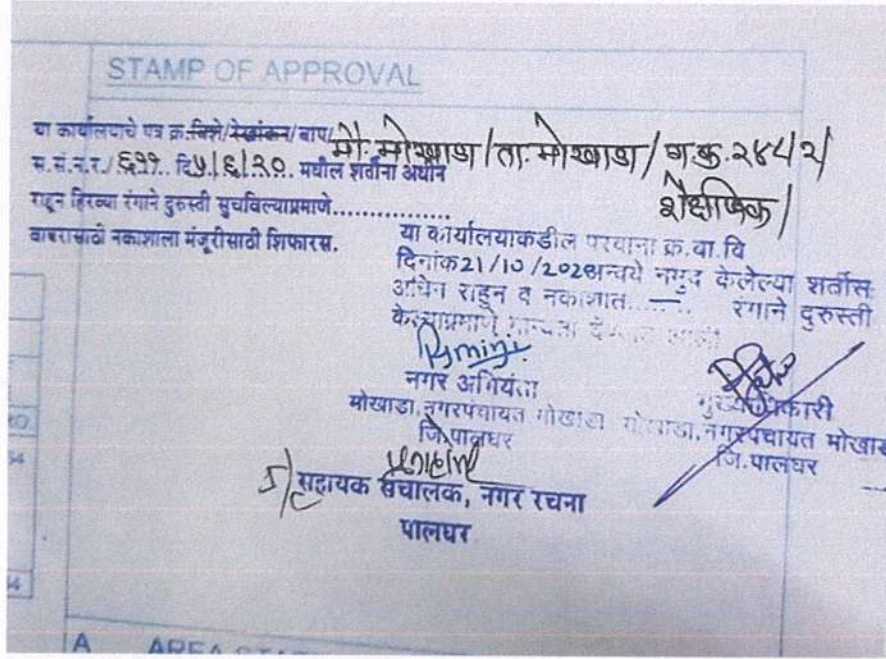 STAMP OF APPROVAL
या कार्यालयाचे पत्र क्र. बिशे/रेखांकन/बाप/ मौ. मोखाडा/ता. मोखाडा/ग.क्र. २४८/२/
स.सं.न.र./६११. दि ५/६/२०. मधील शर्तींना अधीन
शैक्षणिक/
राहून हिरव्या रंगाने दुरुस्ती सुचविल्याप्रमाणे................
वापरासाठी नकाशाला मंजूरीसाठी शिफारस.
या कार्यालयाकडील परवाना क्र.वा.वि
दिनांक 21/10/202 अन्वये नमुद केलेल्या शर्तीस
अधिन राहून व नकाशात........ रंगाने दुरुस्ती
केल्याप्रमाणे मान्यता देण्यात आली
नगर अभियंता
मुख्याधिकारी
मोखाडा, नगरपंचायत मोखाडा
मोखाडा, नगरपंचायत मोखाडा
जि. पालघर
जि. पालघर
सहायक संचालक, नगर रचना
पालघर
A